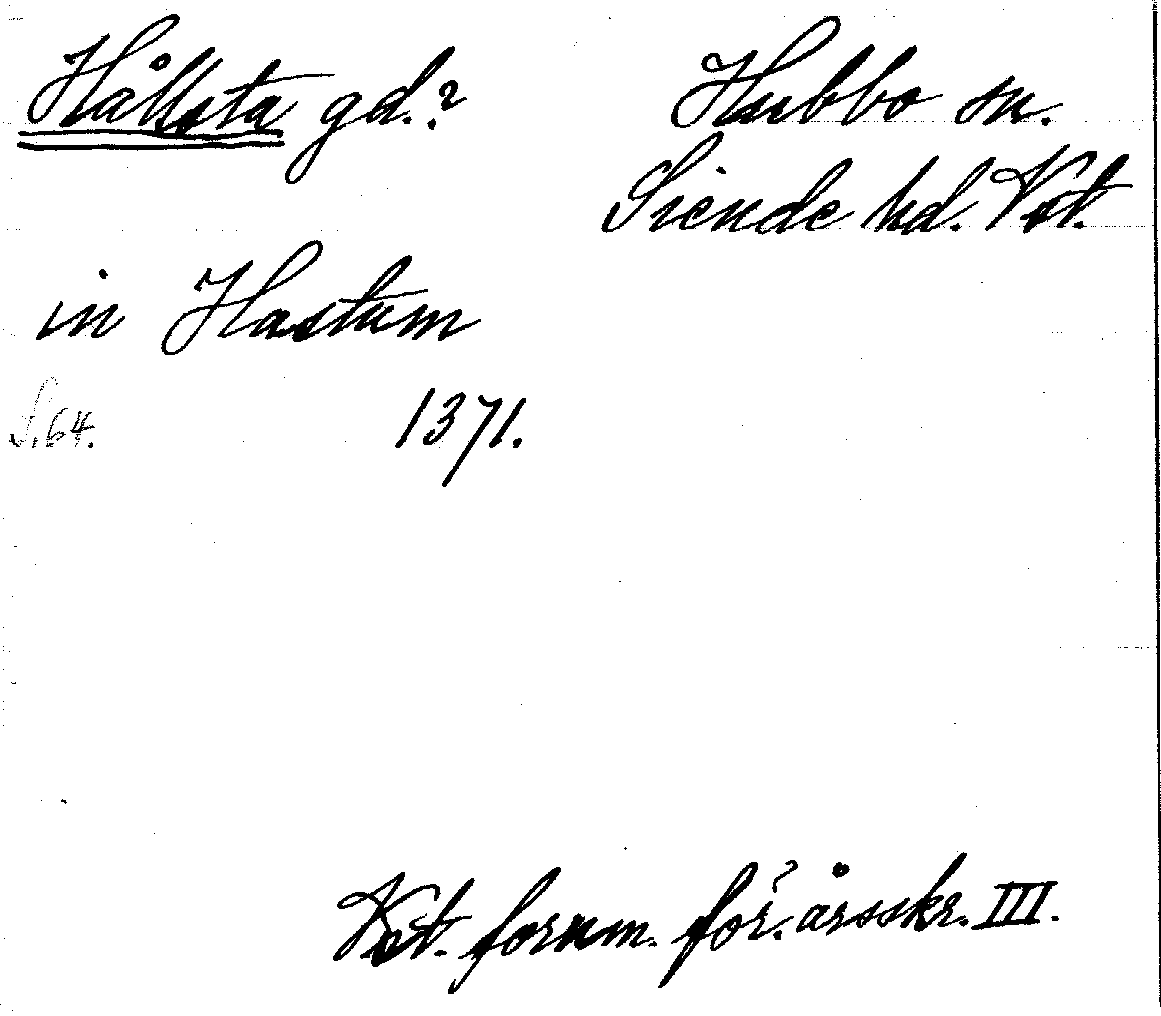 Hållsta gd.?
Hubbo sn.
Siende hd. Vst.
in Hastum
S. 64.
1371.
Vst. fornm. för:s årsskr. III.